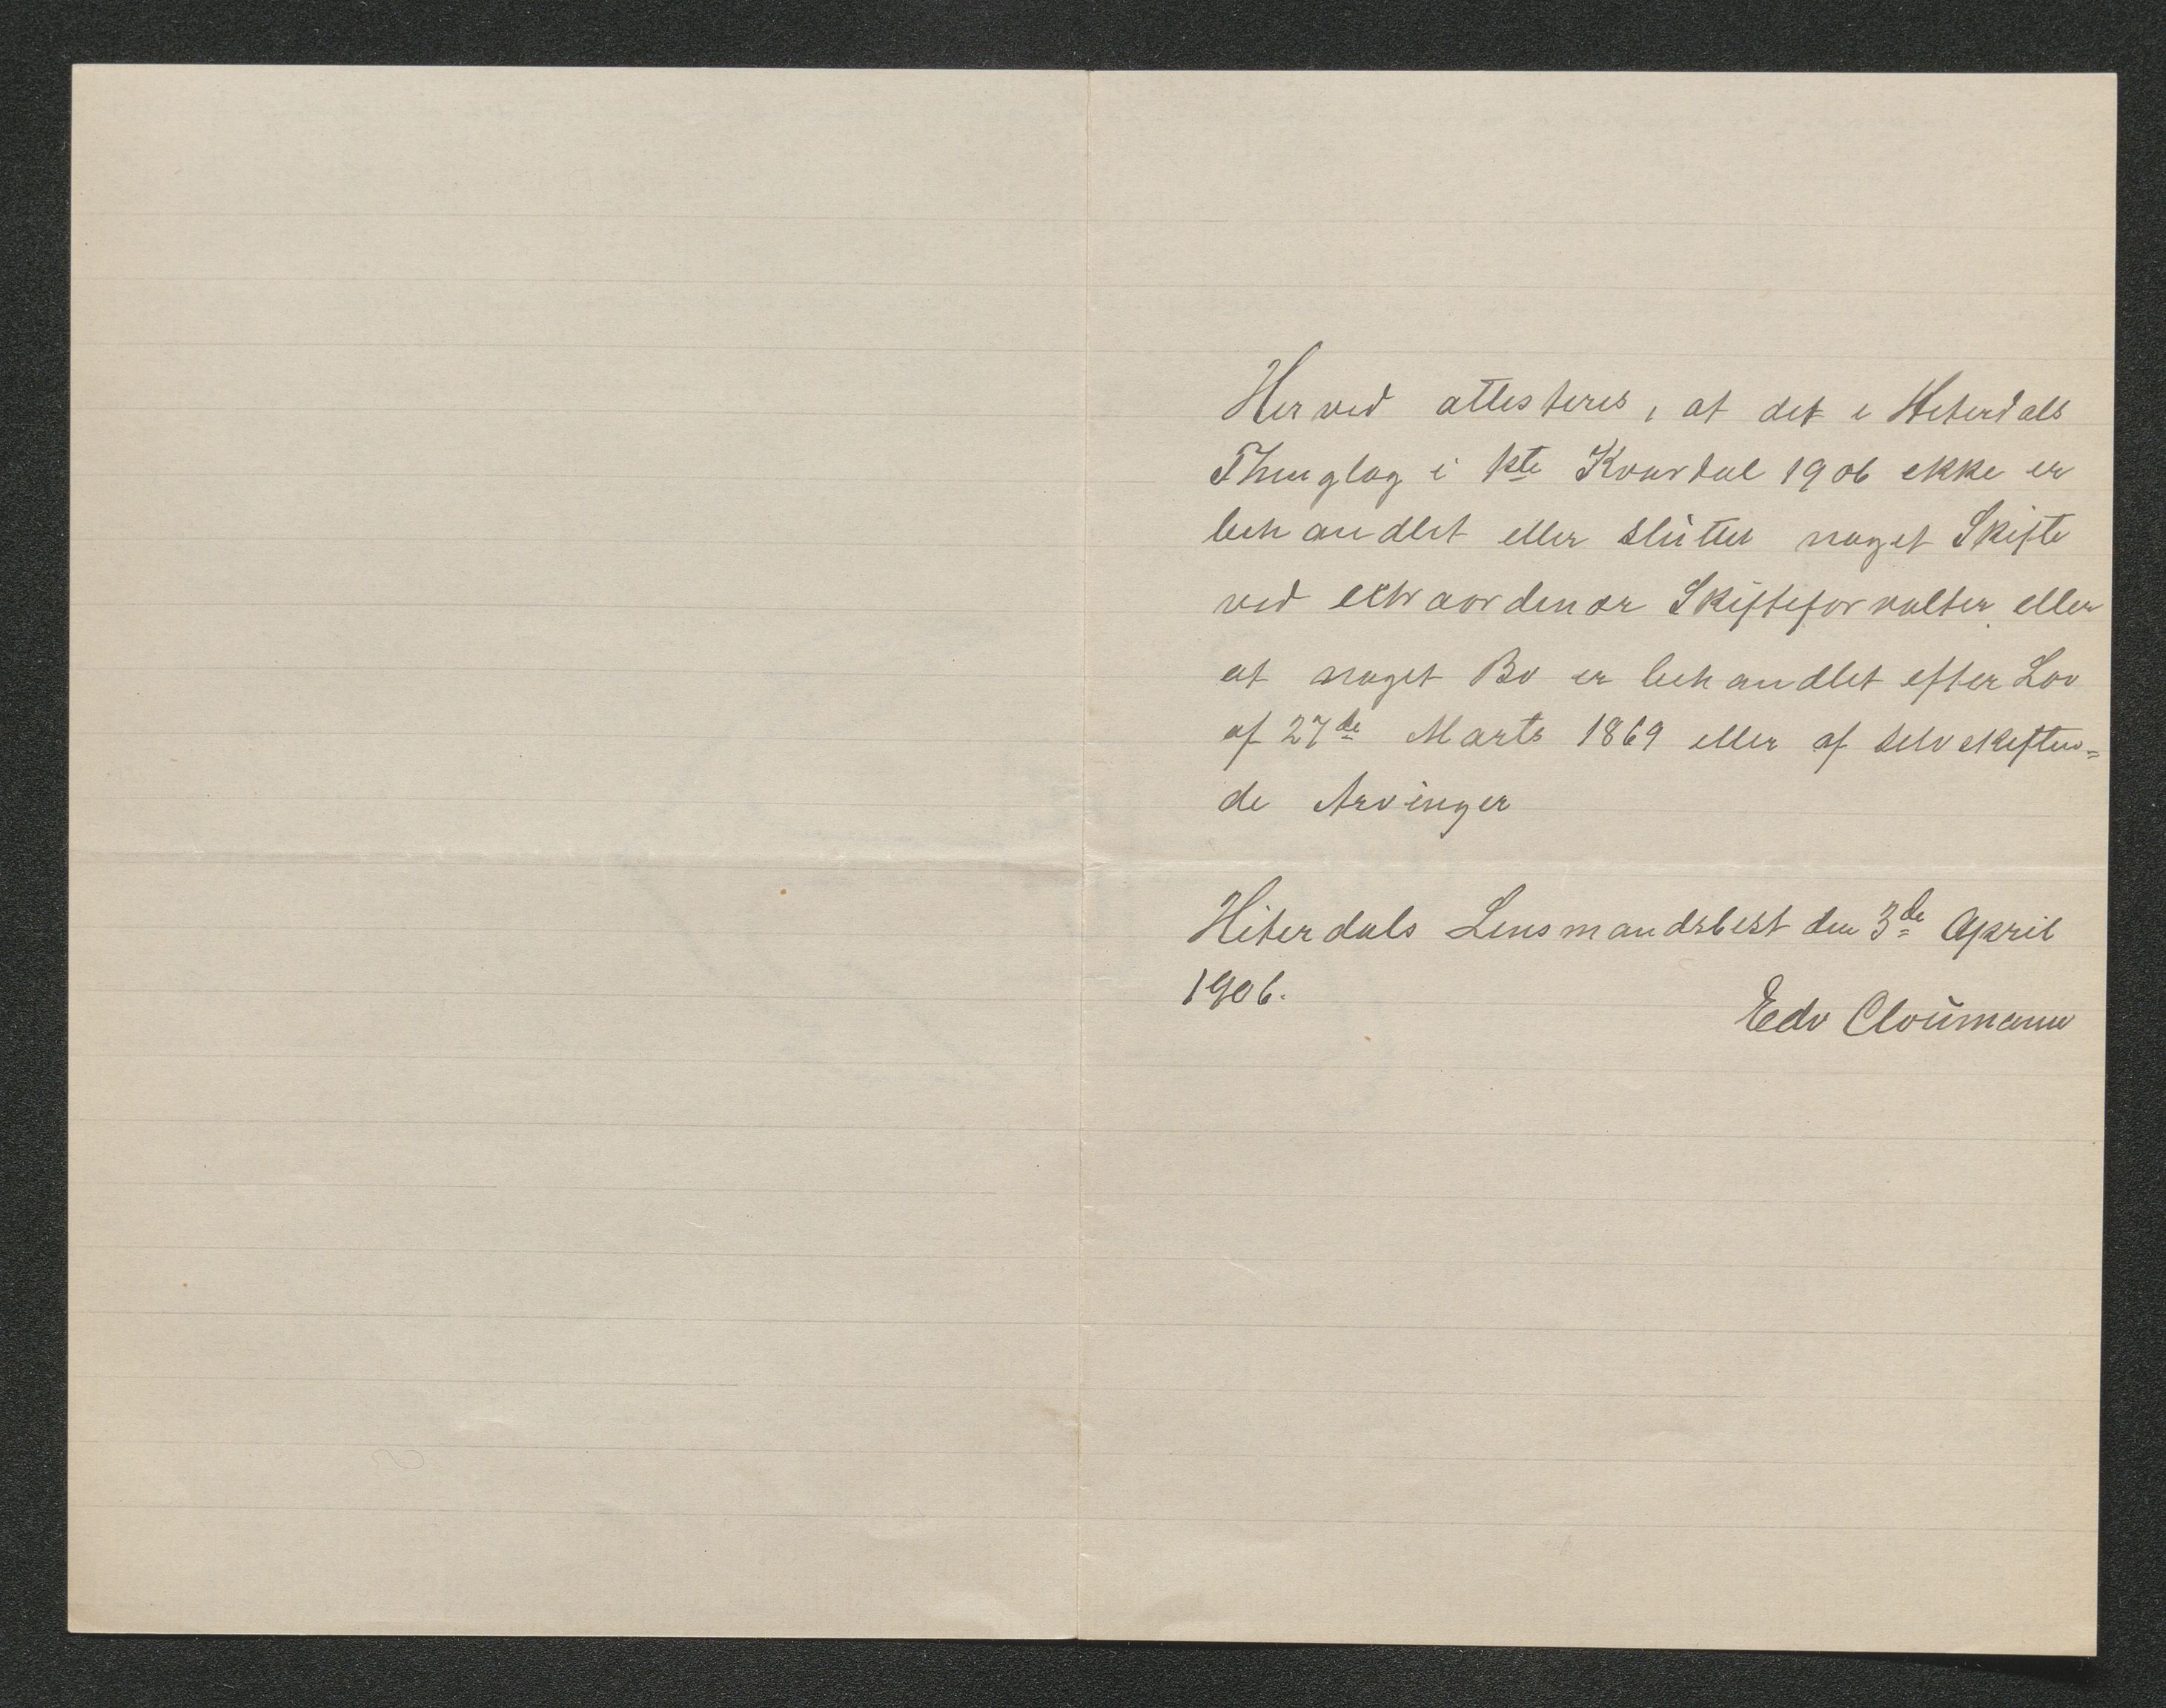 Herved attesteres, at det i Hiterdals
Thinglag i 1ste Kvartal 1906 ikke er
behandlet eller sluttet noget Skifte
ved extraordinær Skifteforvalter eller
at noget Bo er behandlet efter Lov
af 27de Marts 1869 eller af selvskiften=
de Arvinger
Hiterdals Lensmandsbest den 3de April
1906.
Edv Cloumann